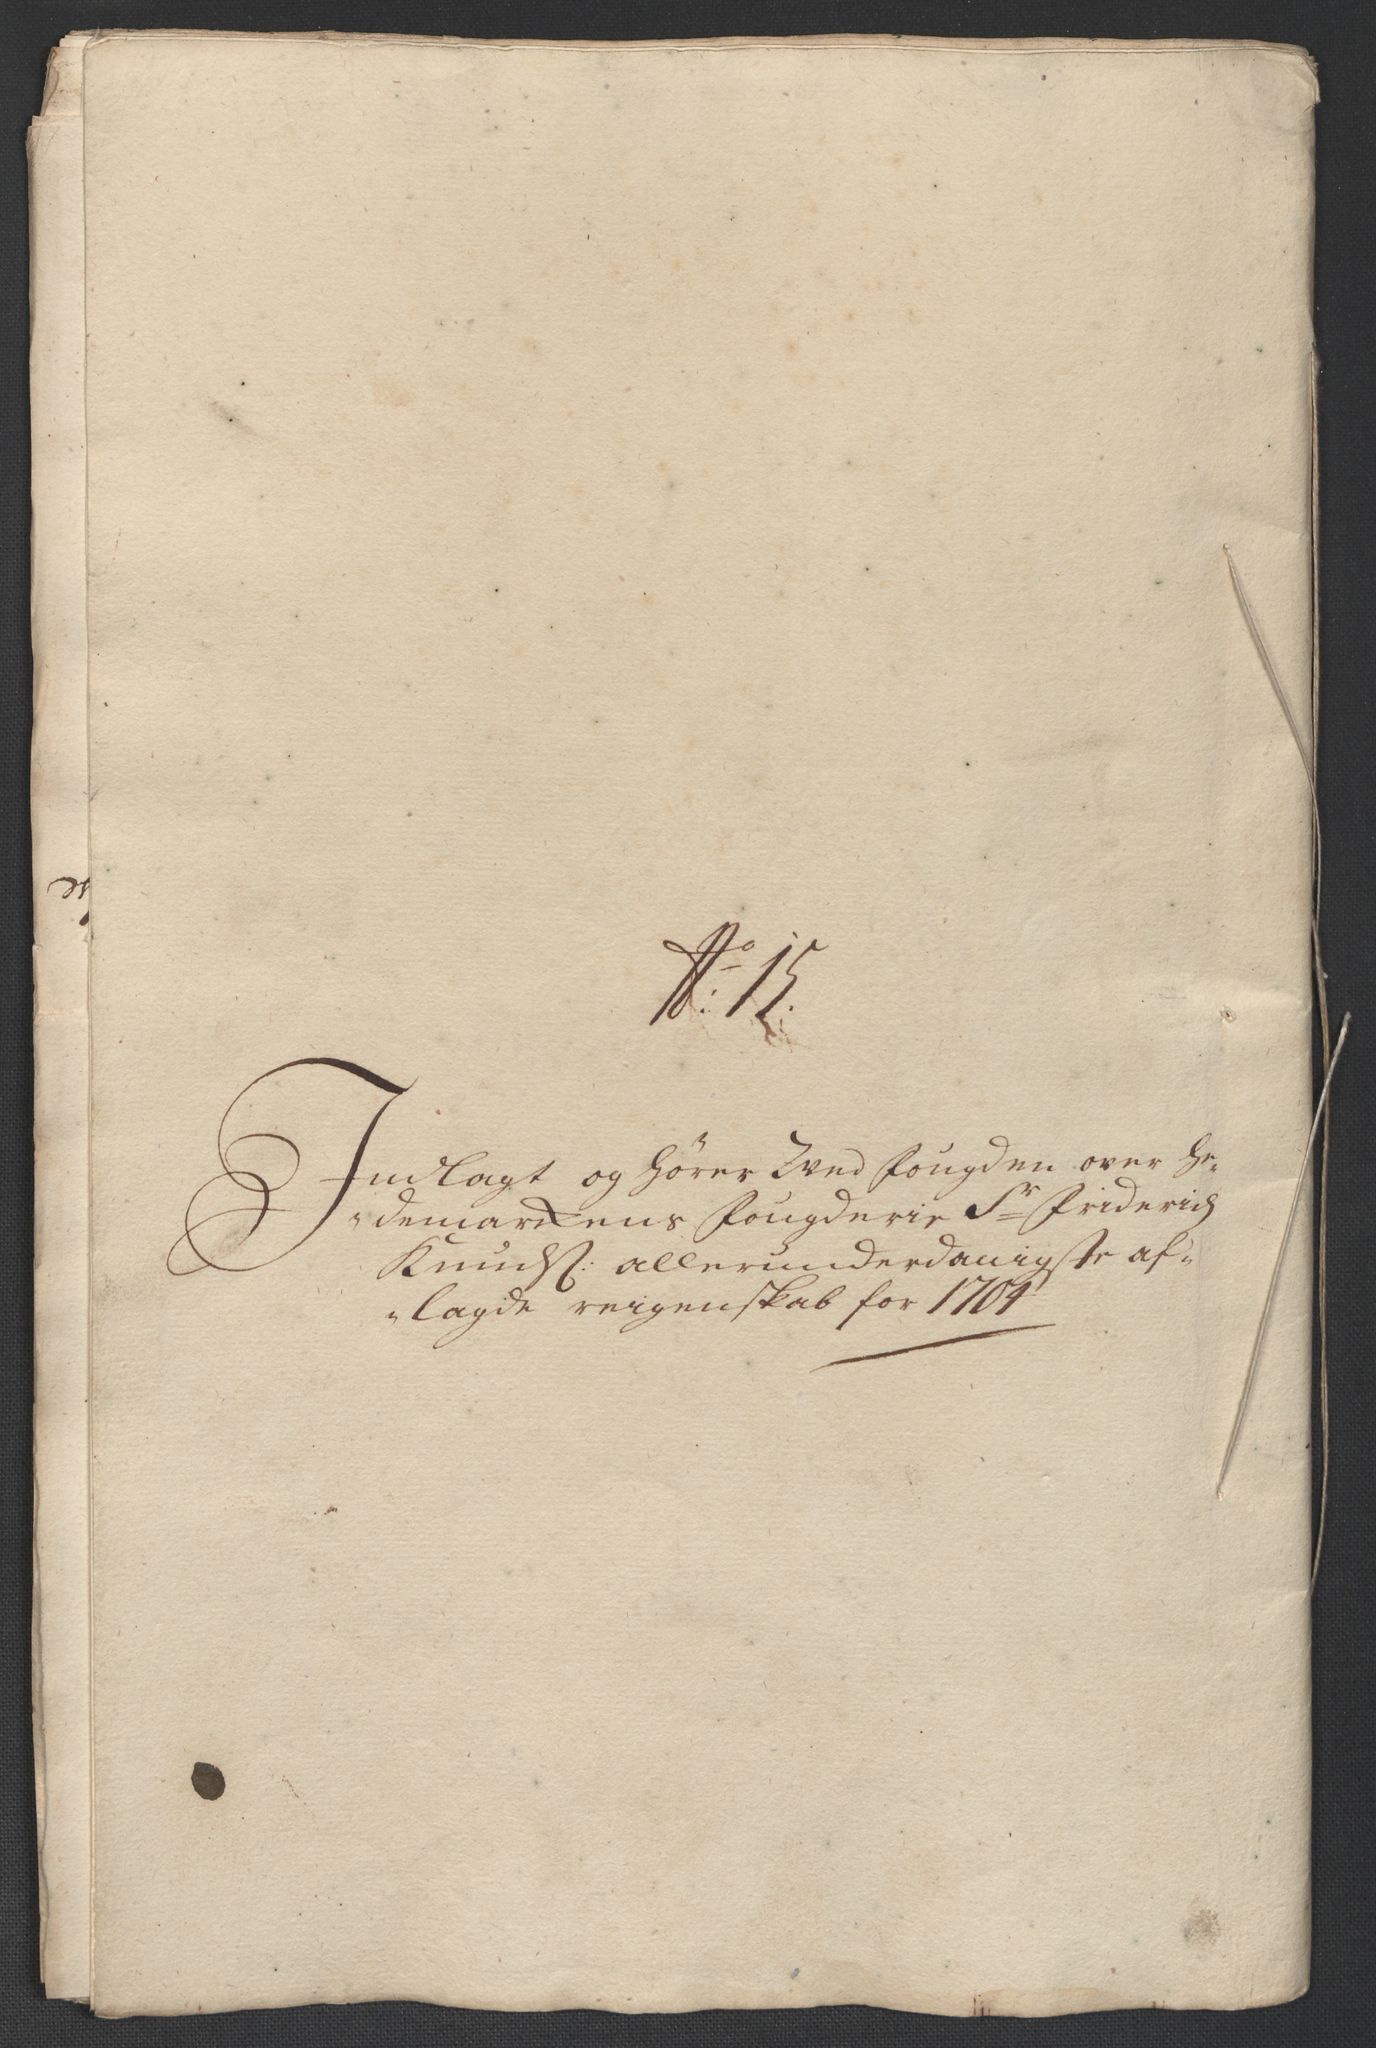 No: 15.
Indlagt og hører Wed fougden over He-
-demarckens fougderie Sr Friderich
Knuds: allerunderdanigste af-
-lagde reigenskab for 1704